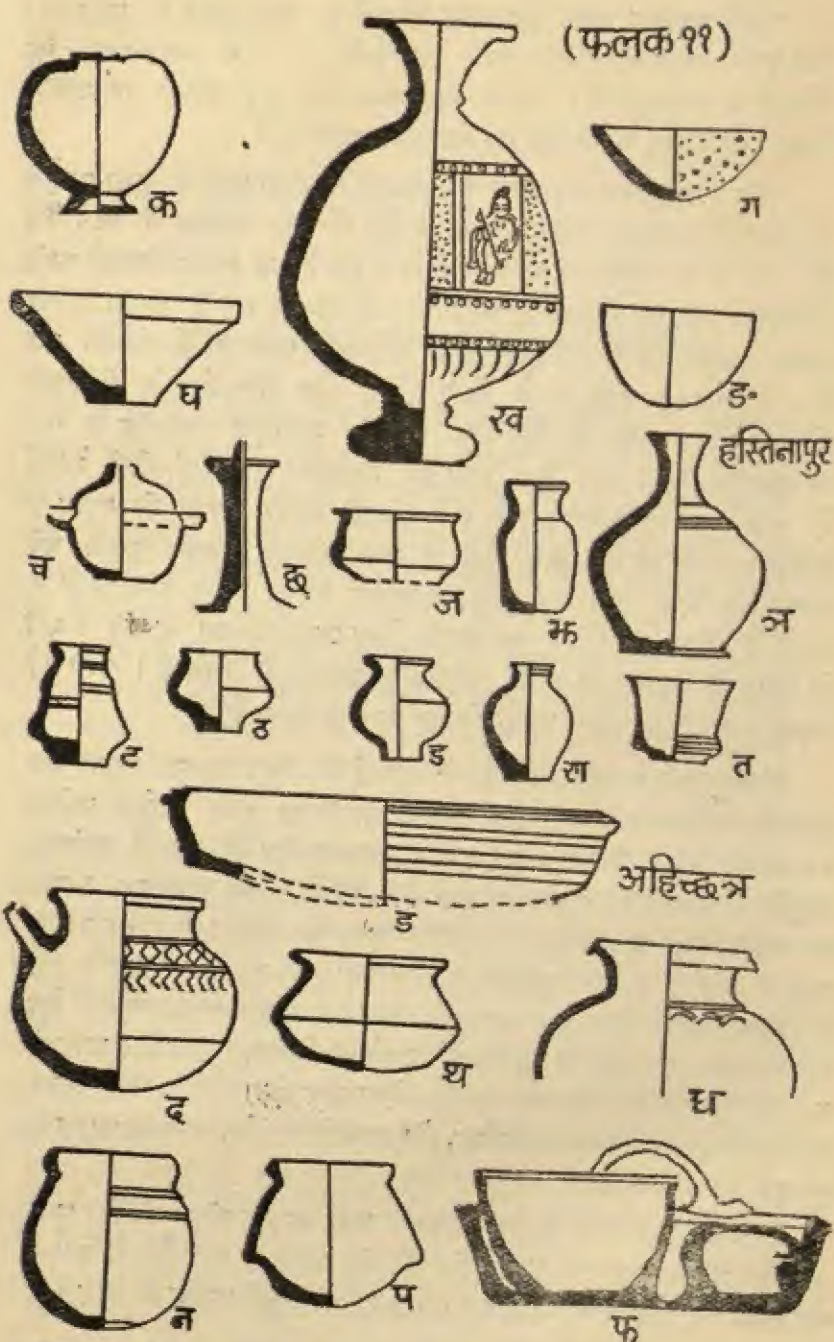 (फलक ११)
क
ख
ग
घ
ङ
हस्तिनापुर
च
छ
ज
झ
ञ
ट
ठ
ड
ण
त
ड
अहिच्छत्र
द
थ
ध
न
प
फ